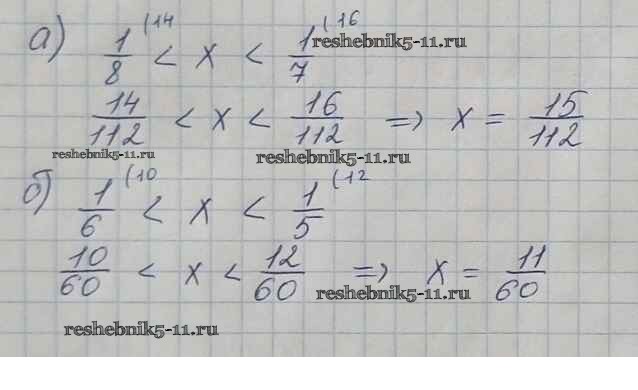 а) 1/8 (14 < x < 1/7 (16
reshebnik5-11.ru
14/112 < x < 16/112 => x = 15/112
reshebnik5-11.ru reshebnik5-11.ru
б) 1/6 (10 < x < 1/5 (12
10/60 < x < 12/60 => x = 11/60
reshebnik5-11.ru
reshebnik5-11.ru